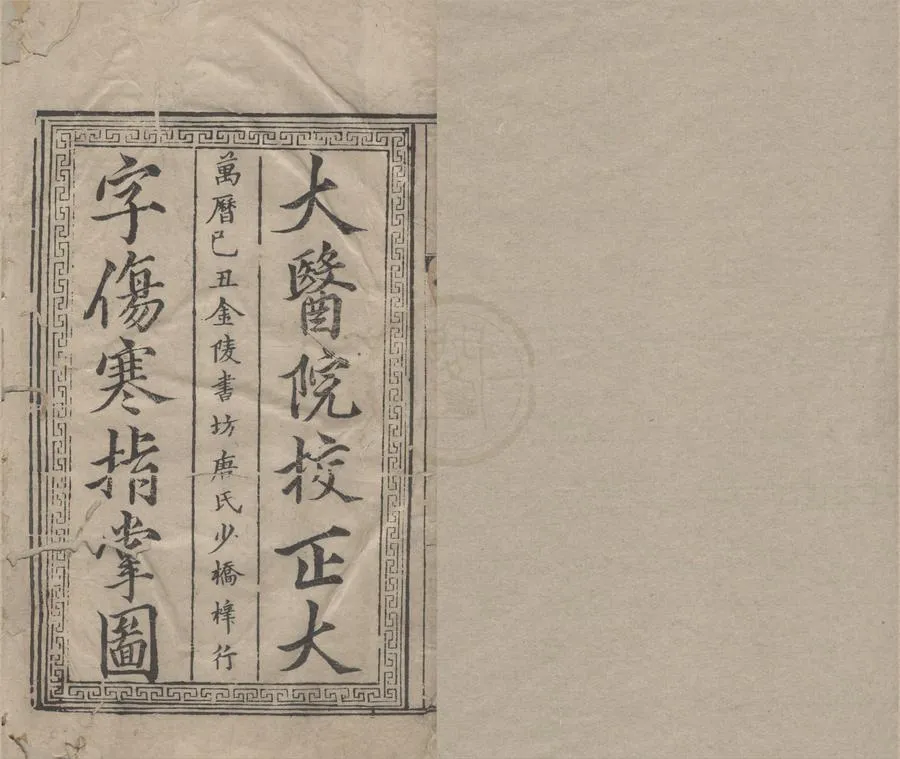 大醫院挍正大
萬曆己丑金陵書坊唐氏少橋梓行
字傷寒指掌圖